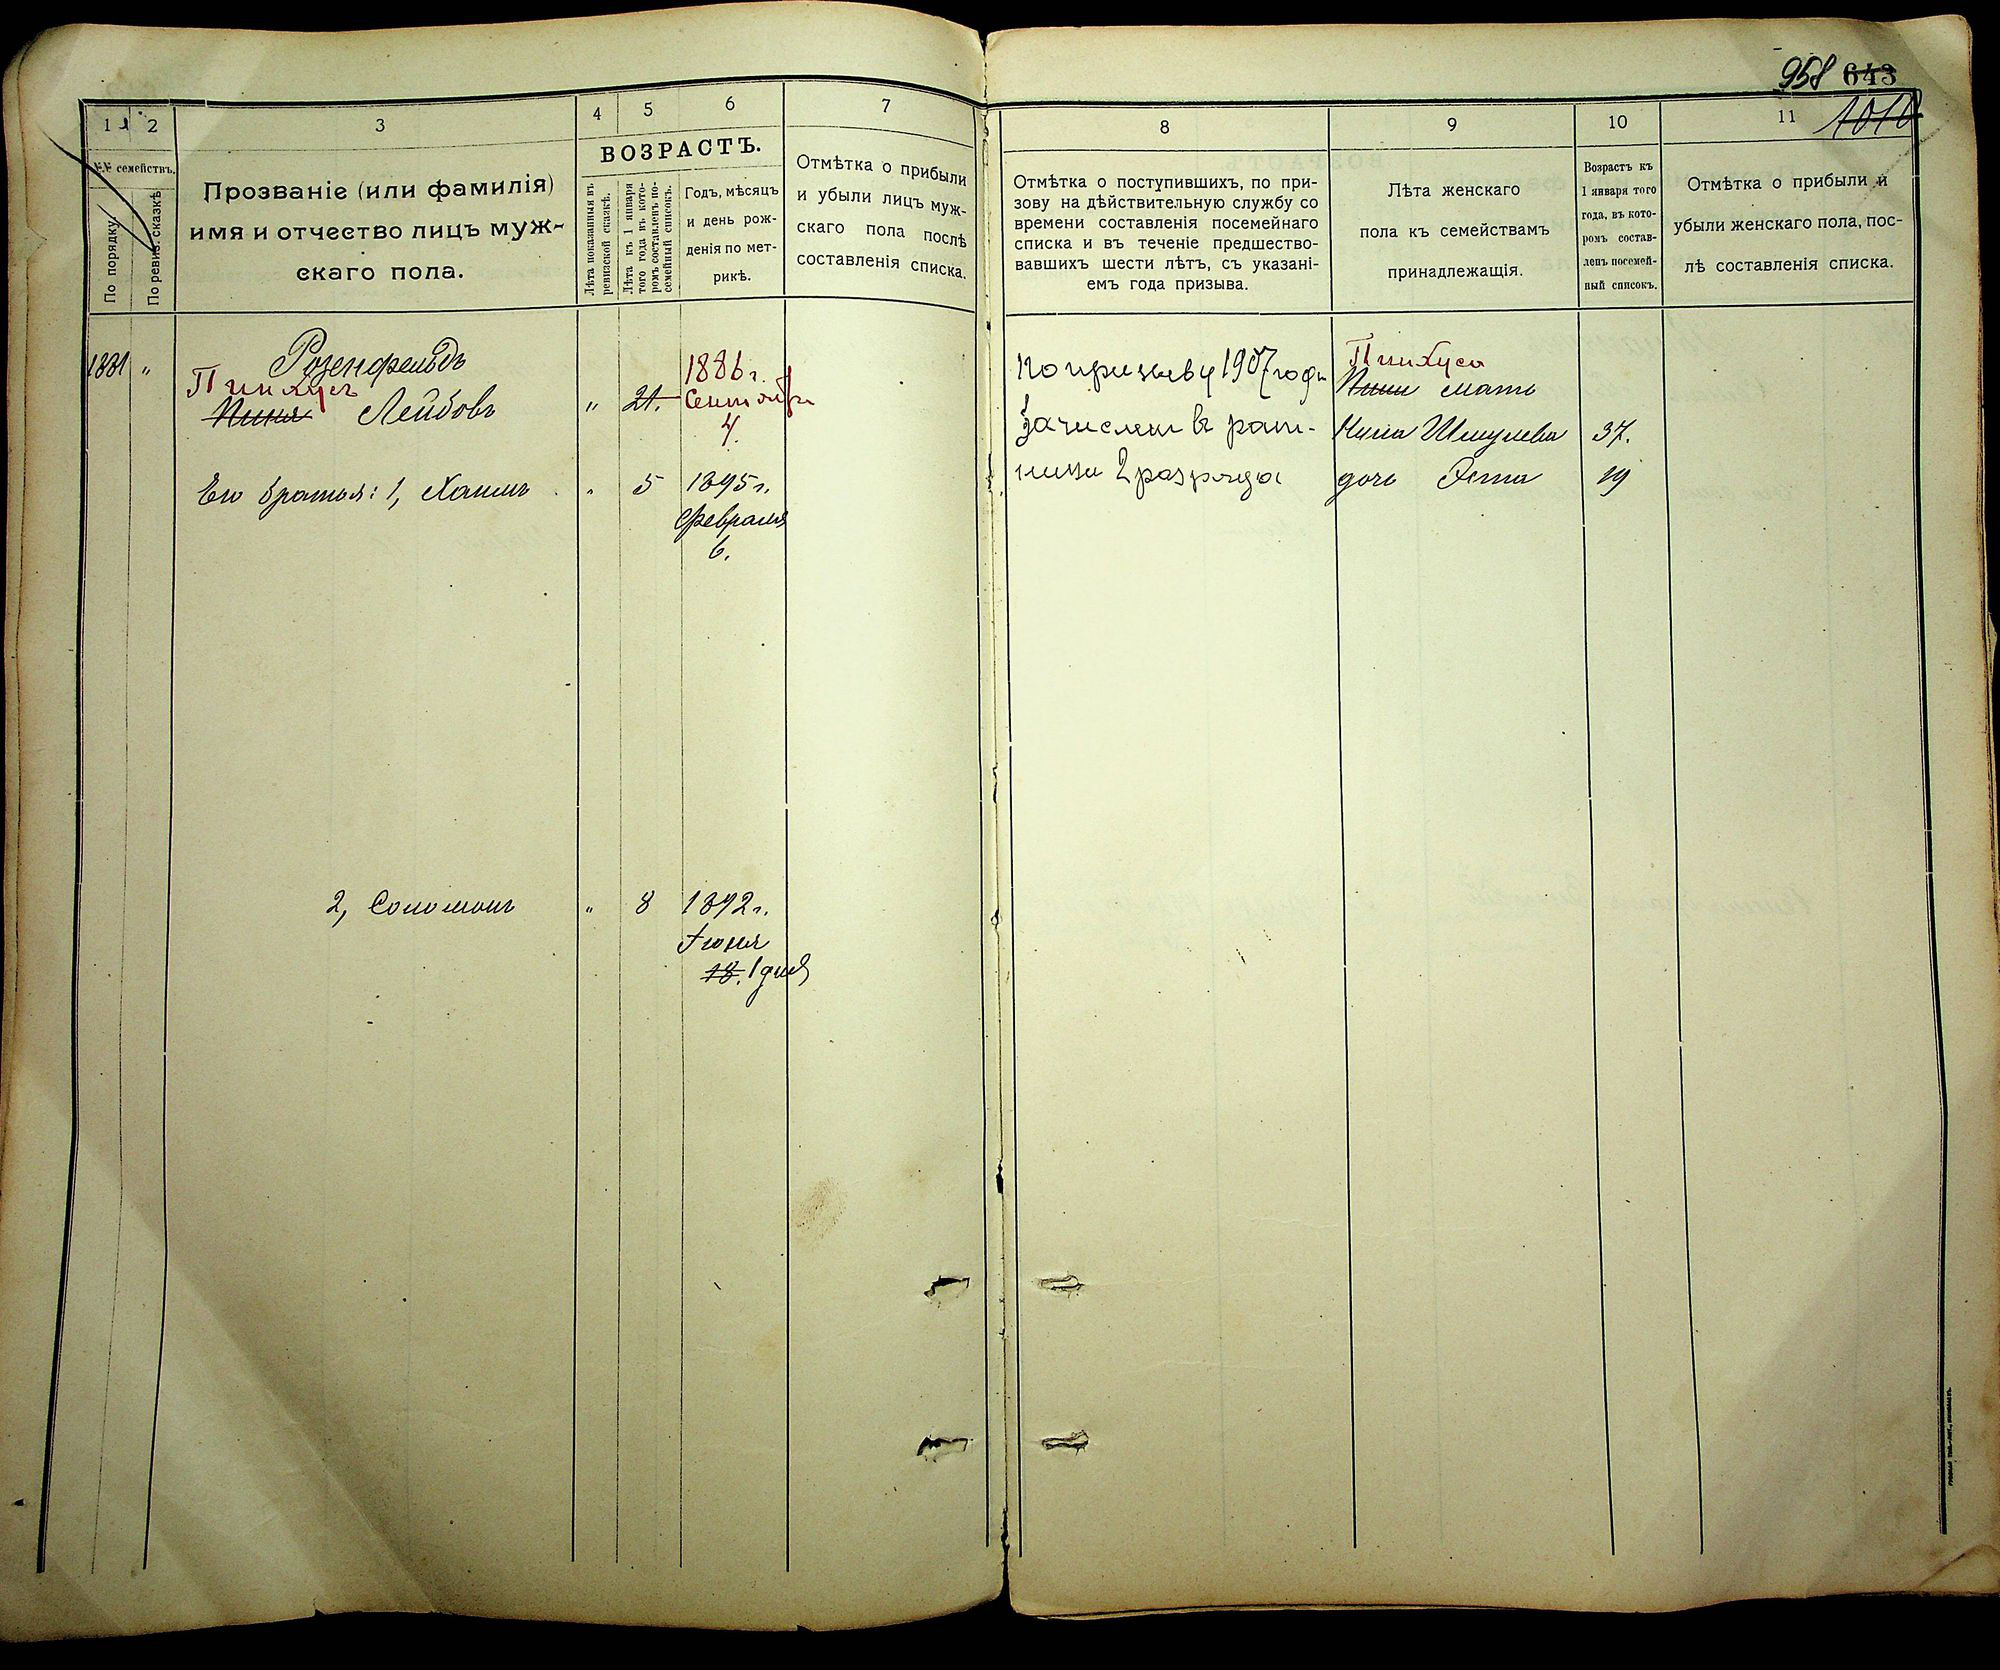 958 643
1010
1
2
3
4
5
6
7
№№ семействъ.
По порядку.
По ревиз. сказкѣ
Прозваніе (или фамилія)
имя и отчество лицъ муж-
скаго пола.
ВОЗРАСТЪ.
Лѣта показанныя въ
ревизской сказкѣ.
Лѣта къ 1 января
того года въ кото-
ромъ составленъ по-
семейный списокъ.
Годъ, мѣсяцъ
и день рож-
денія по мет-
рикѣ.
Отмѣтка о прибыли
и убыли лицъ муж-
скаго пола послѣ
составленія списка.
1881 "
Розенфельдъ
Пинхусъ
Пиня Лейбовъ " 21.
1886 г.
Сентября
4.
Его братья: 1, Хаимъ " 5 1895 г.
Февраля
6.
2, Соломонъ " 8 1892 г.
Іюня
18. 1 дня
8
9
10
11
Отмѣтка о поступившихъ, по при-
зову на дѣйствительную службу со
времени составленія посемейнаго
списка и въ теченіе предшество-
вавшихъ шести лѣтъ, съ указані-
емъ года призыва.
Лѣта женскаго
пола къ семействамъ
принадлежащія.
Возрастъ къ
1 января того
года, въ кото-
ромъ состав-
ленъ посемей-
ный списокъ.
Отмѣтка о прибыли и
убыли женскаго пола, пос-
лѣ составленія списка.
по призыву 1907 года
зачислен в рат-
ники 2 разряда
Пинхуса
Пини мать
Шмулева 37.
дочь 19